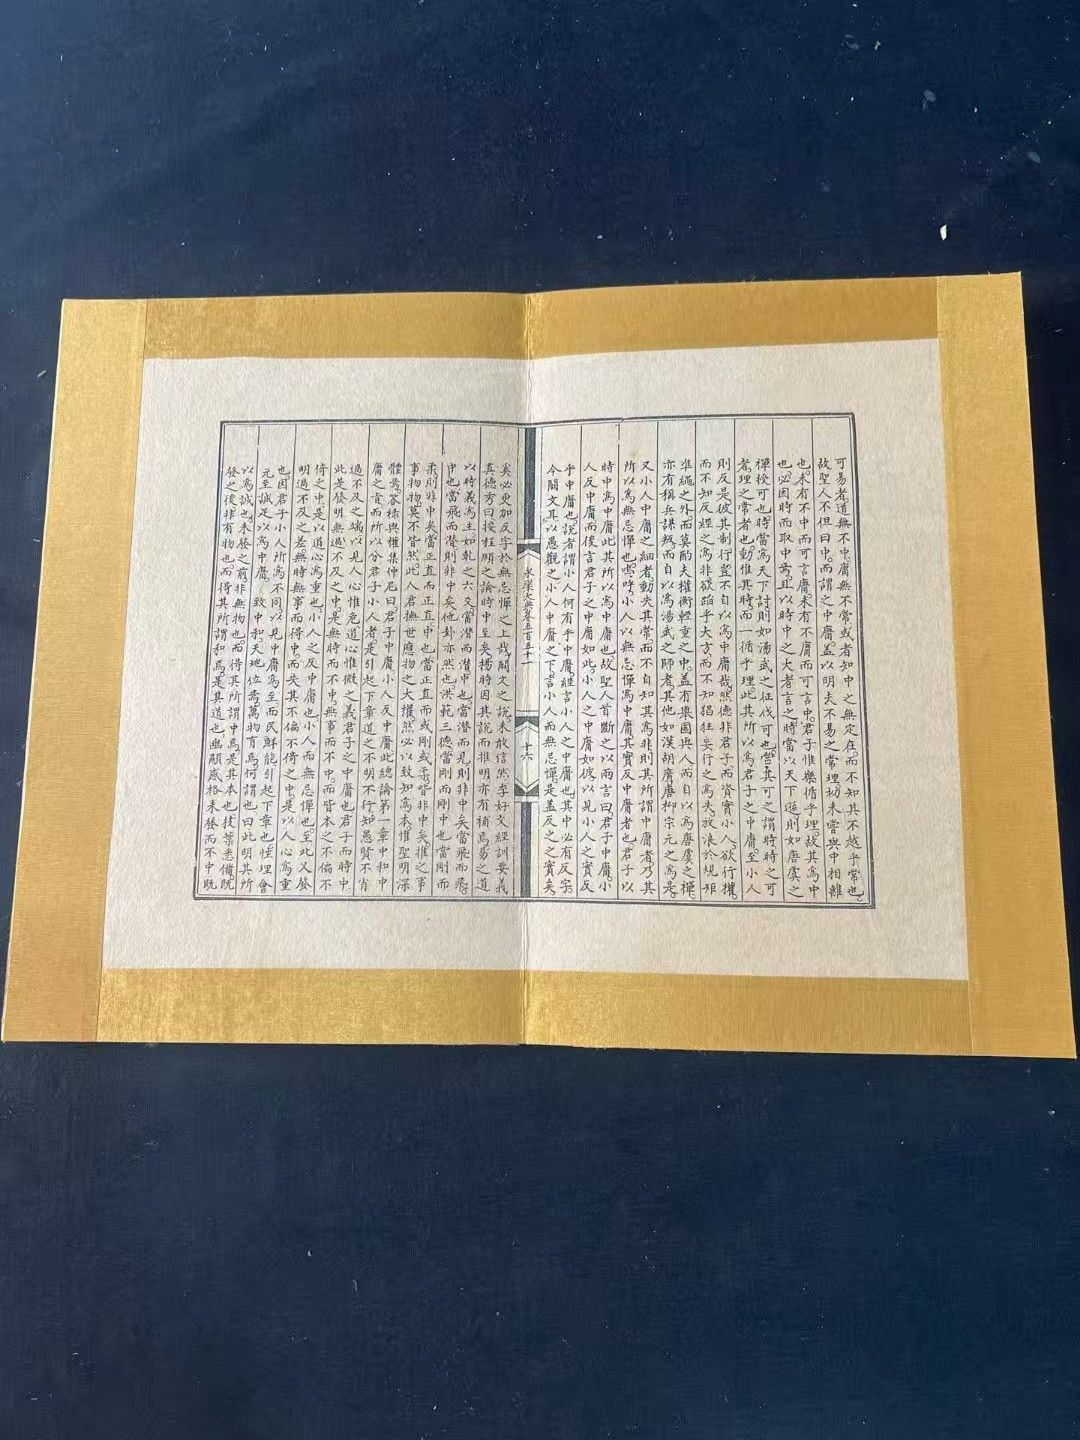 可易者道無不中庸無不常或者知中之無定在而不知其不越乎常也
故聖人不但曰中而謂之中庸蓋以明夫不易之常理初未嘗與中相離
也未有不中而可言庸未有不庸而可言中君子惟樂循乎理故其為中
也必因時而取中焉且以時中之大者言之時當以天下遜則如唐虞之
禪授可也時當為天下討則如湯武之征伐可也嘗其可之謂時時之可
者理之常者也動惟其時而一循乎理此其所以為君子之中庸至小人
則反是彼其制行豈不自以為中庸哉然德非君子而資實小人欲行權
而不知反經之為非欲蹈乎大方而不知猖狂妄行之為失放浪於規矩
準繩之外而莫酌夫權衡輕重之中蓋有業國與人而自以為唐虞之禪
亦有稱兵謀叛而自以為湯武之師者其他如漢胡廣唐柳宗元之為是
又小人中庸之細者動失其常而不自知其為非則其所謂中庸者乃其
所以為無忌憚也嗚呼小人以無忌憚為中庸其實反中庸者也君子以
時中為中庸此其所以為中庸也故聖人首斷之以兩言曰君子中庸小
人反中庸而後言君子之中庸如此小人之中庸如彼以見小人之實反
乎中庸也說者謂小人何有乎中庸經言小人之中庸也其中必有反字
今闕文耳以愚觀之小人中庸之下言小人而無忌憚是蓋反之之實矣
永樂大典卷五百五十一
十六
奚必更加反字於無忌憚之上哉闕文之說未敢信然李好文經訓要義
真德秀曰按程頤之論時中至矣楊時因其說而推明亦有補焉易之道
以時義為主如乾之六爻當潛而潛中也當潛而見則非中矣當飛而飛
中也當飛而潛則非中矣他卦亦然也洪範三德當剛而剛中也當剛而
柔則非中矣當正直而正直中也當正直而或剛或柔皆非中矣推之事
事物物莫不皆然此人君撫世應物之大權然必以致知為本惟聖明深
體焉答祿與權集仲尼曰君子中庸小人反中庸此總論第一章中和中
庸之旨而所以分君子小人者是引起下章道之不明不行知愚賢不肖
過不及之端以見人心惟危道心惟微之義君子之中庸也君子而時中
此是發明無過不及之中是無時而不中無事而不中而皆本之不偏不
倚之中是以道心為重也小人之反中庸也小人而無忌憚也至此又發
明過不及之差無時無事而得中而失其不偏不倚之中是以人心為重
也因君子小人所為不同以見中庸為至而民鮮能引起下章也性理會
元至誠足以為中庸致中和天地位焉萬物育焉何謂也曰此明其所
以為誠也未發之前非無物也而得其所謂中焉是其本也枝葉悉備既
發之後非有物也而得其所謂和焉是其道也幽顯感格未發而不中既